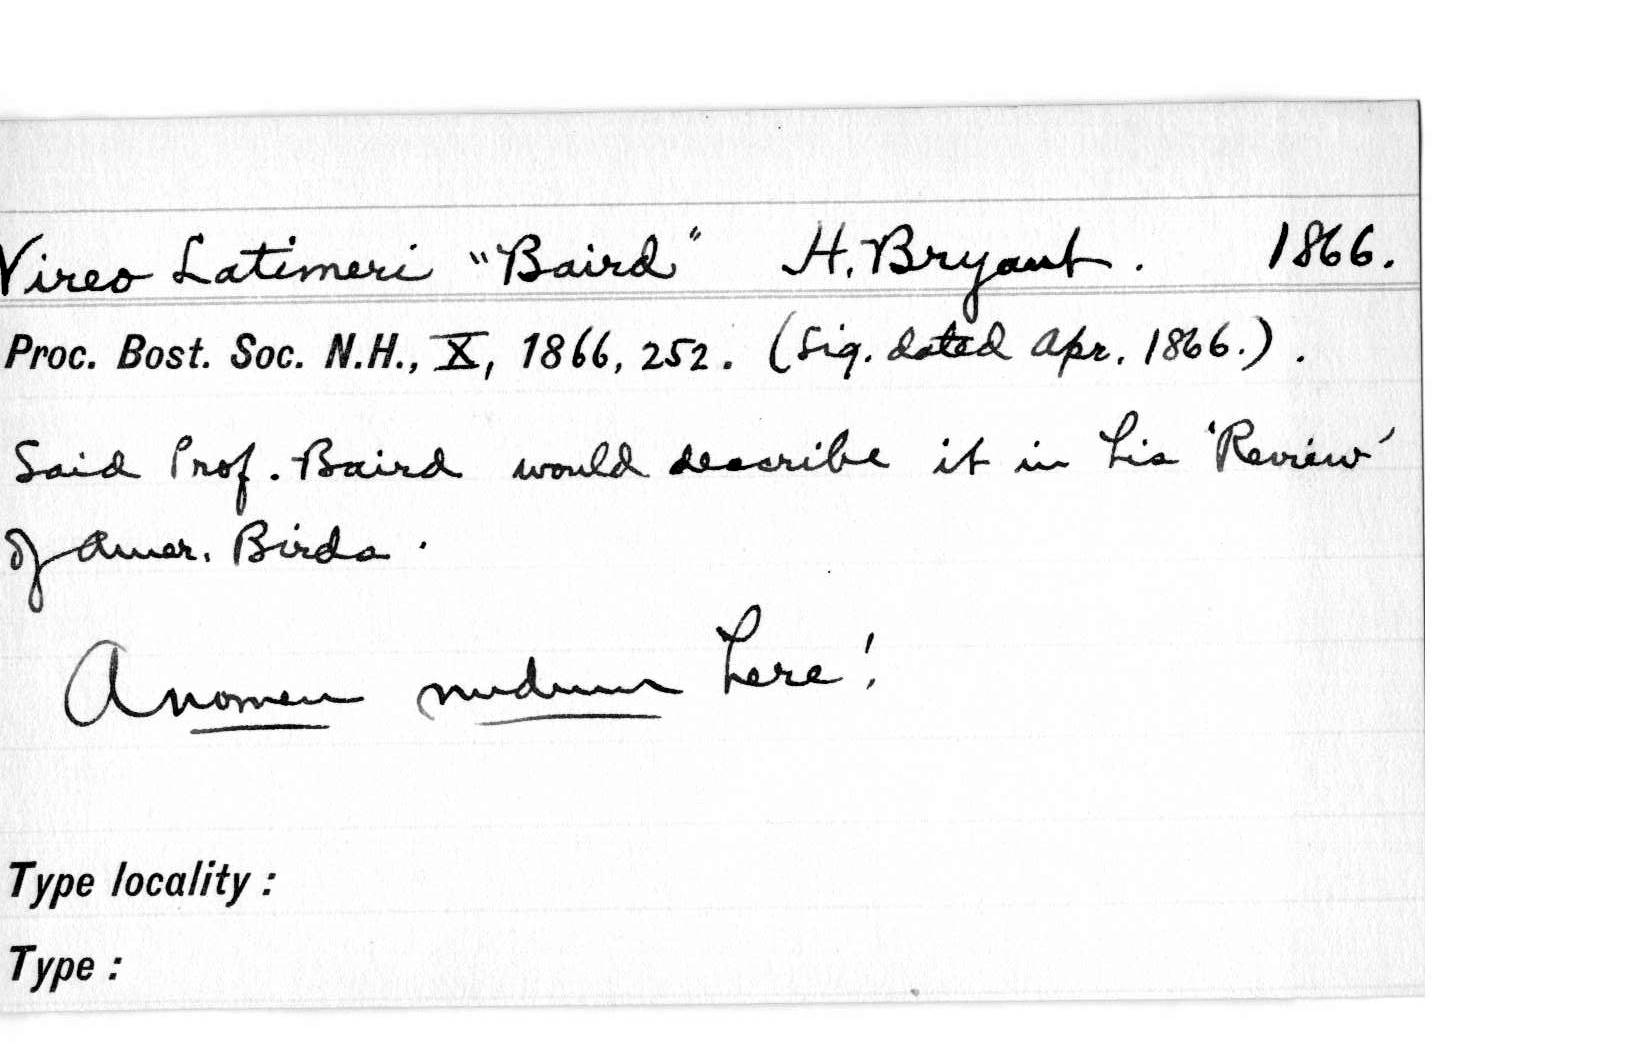 Vireo Latimeri "Baird" H. Bryant. 1866.
Proc. Bost. Soc. N.H., X, 1866, 252. (Sig. dated Apr. 1866.).
Said Prof. Baird would describe it in his 'Review'
of Amer. Birds.
A nomen nudum here!
Type locality:
Type: